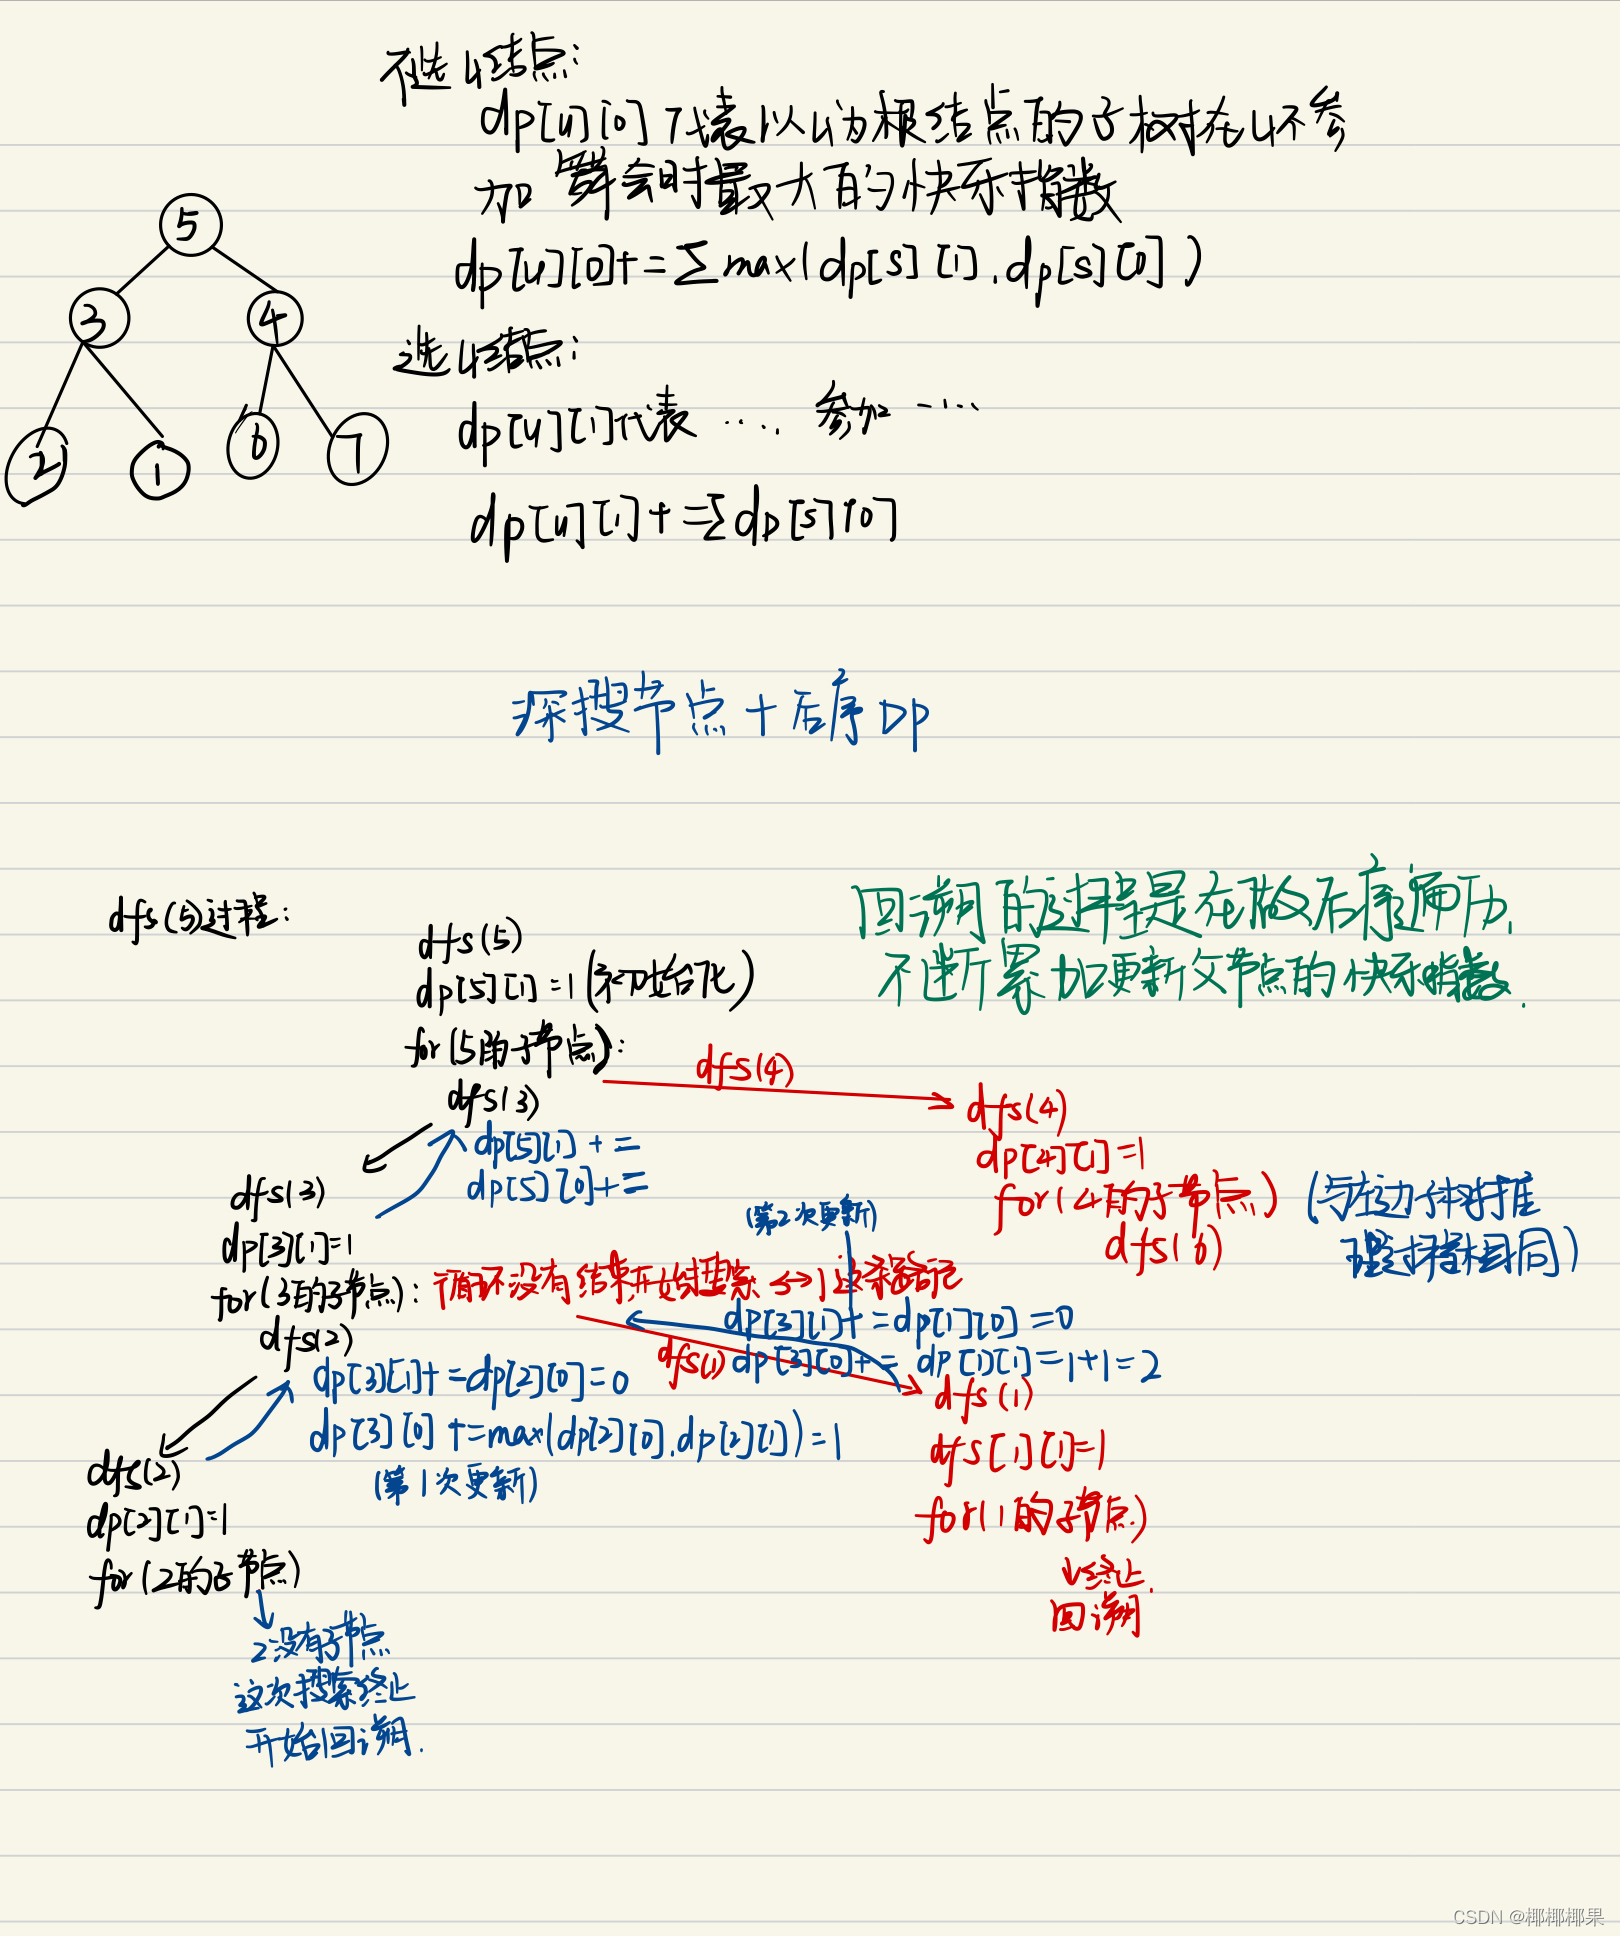 不选u结点:
dp[u][0]代表以u为根结点的子树在u不参
加舞会时最大的快乐指数
dp[u][0]+=∑max(dp[s][1],dp[s][0])
5
3
4
2
1
6
7
选u结点:
dp[u][1]代表 ···· 参加 ····
dp[u][1]+=∑dp[s][0]
深搜节点+后序DP
回溯的过程是在做后序遍历,
不断累加更新父节点的快乐指数.
dfs(5)过程:
dfs(5)
dp[5][1]=1(初始化)
for(5的子节点):
dfs(3)
dp[5][1]+=
dp[5][0]+=
dfs(4)
dfs(4)
dp[4][1]=1
for(4的子节点)
dfs(6)
(与左边子树推
理过程相同)
dfs(3)
dp[3][1]=1
for(3的子节点):
dfs(2)
循环没有结束,开始搜索 3->1这条路径
(第2次更新)
dp[3][1]+=dp[1][0]=0
dp[3][0]+=dp[1][1]=1+1=2
dfs(1)
dp[3][1]+=dp[2][0]=0
dp[3][0]+=max(dp[2][0],dp[2][1])=1
(第1次更新)
dfs(1)
dfs[1][1]=1
for(1的子节点)
↓终止.
回溯
dfs(2)
dp[2][1]=1
for(2的子节点)
2没有子节点
这次搜索终止
开始回溯.
CSDN @椰椰椰果